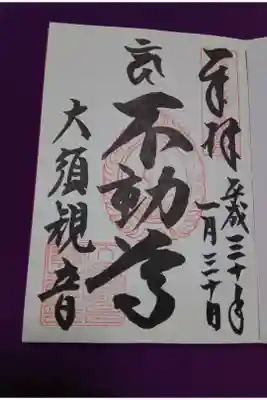 奉拝
平成三十年
一月三十日
不動尊
大須観音